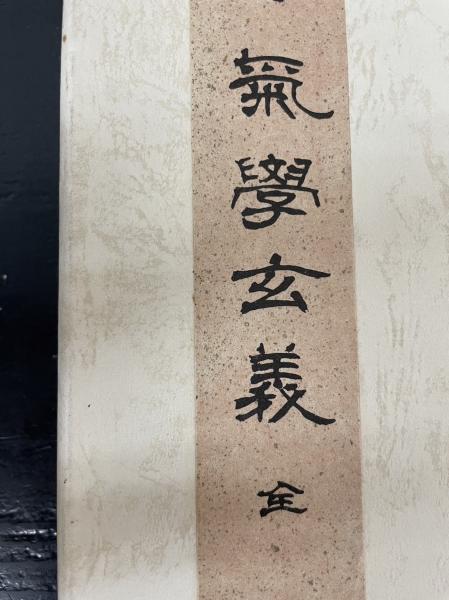 氣學玄義
全